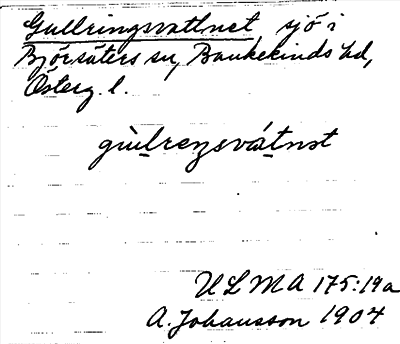 Gullringsvattnet, sjö i
Björsäters sn, Bankekinds hd,
Österg. l.
gùlreŋsvátnət
ULMA 175:19a
A. Johansson 1904